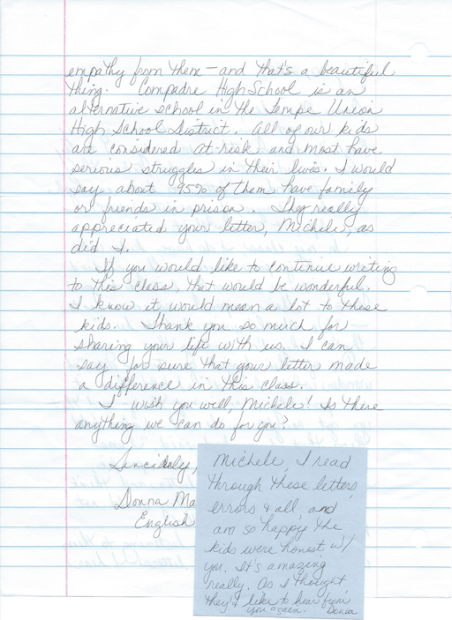 empathy from there—and that's a beautiful
thing. Compadre High School is an
alternative school in the Tempe Union
High School District. All of our kids
are considered at risk and most have
serious struggles in their lives. I would
say about 95% of them have family
or friends in prison. They really
appreciated your letter, Michele, as
did I.
If you would like to continue writing
to this class, that would be wonderful.
I know it would mean a lot to these
kids. Thank you so much for
sharing your life with us. I can
say for sure that your letter made
a difference in this class.
I wish you well, Michele! Is there
anything we can do for you?
Sincerely,
Donna Ma
English
Michele, I read
through these letters,
errors & all, and
am so happy the
kids were honest w/
you. It's amazing
really. As I thought,
they'd like to hear from
you again. Donna